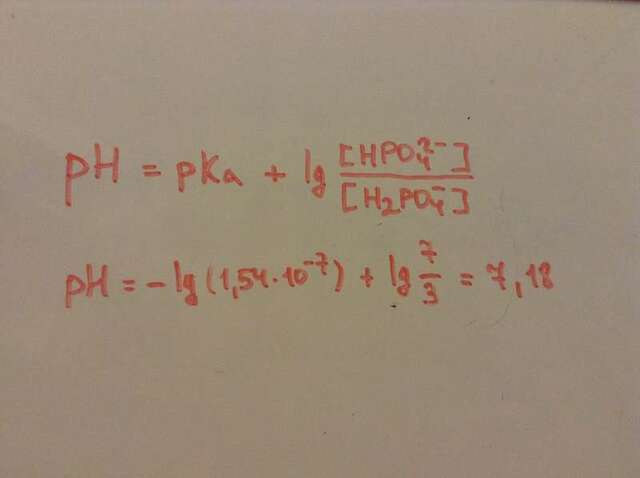 pH = pKa + lg [HPO₄²⁻] / [H₂PO₄⁻]
pH = -lg(1,54·10⁻⁷) + lg 7/3 = 7,18